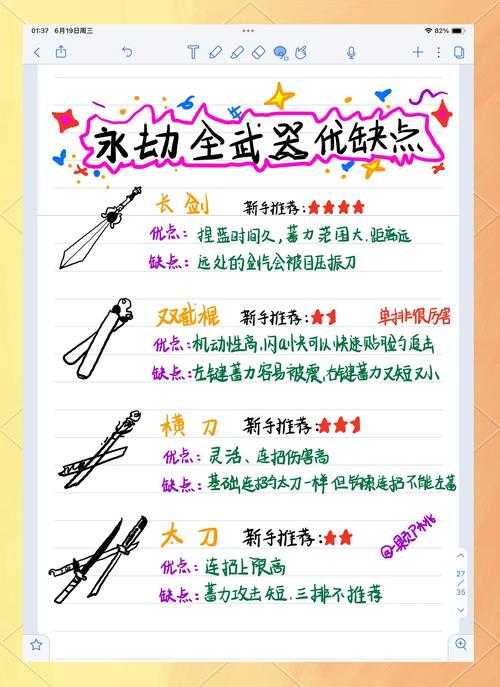 01:37 6月19日周三
82%
永劫全武器优缺点
长剑 新手推荐:★★★★
优点: 捏蓝时间久,蓄力范围大.距离远
缺点: 远处的剑气会被目压振刀
双截棍 新手推荐: 单排很厉害
优点:机动性高,闪a快可以快速贴脸追击
缺点:左键蓄力容易被震,右键蓄力又短又小
横刀 新手推荐:
优点: 灵活、连招伤害高
缺点: 基础连招与太刀一样但钩锁连招不能左蓄
太刀 新手推荐:★★
优点: 连招上限高
缺点: 蓄力攻击短.三排不推荐
27
35